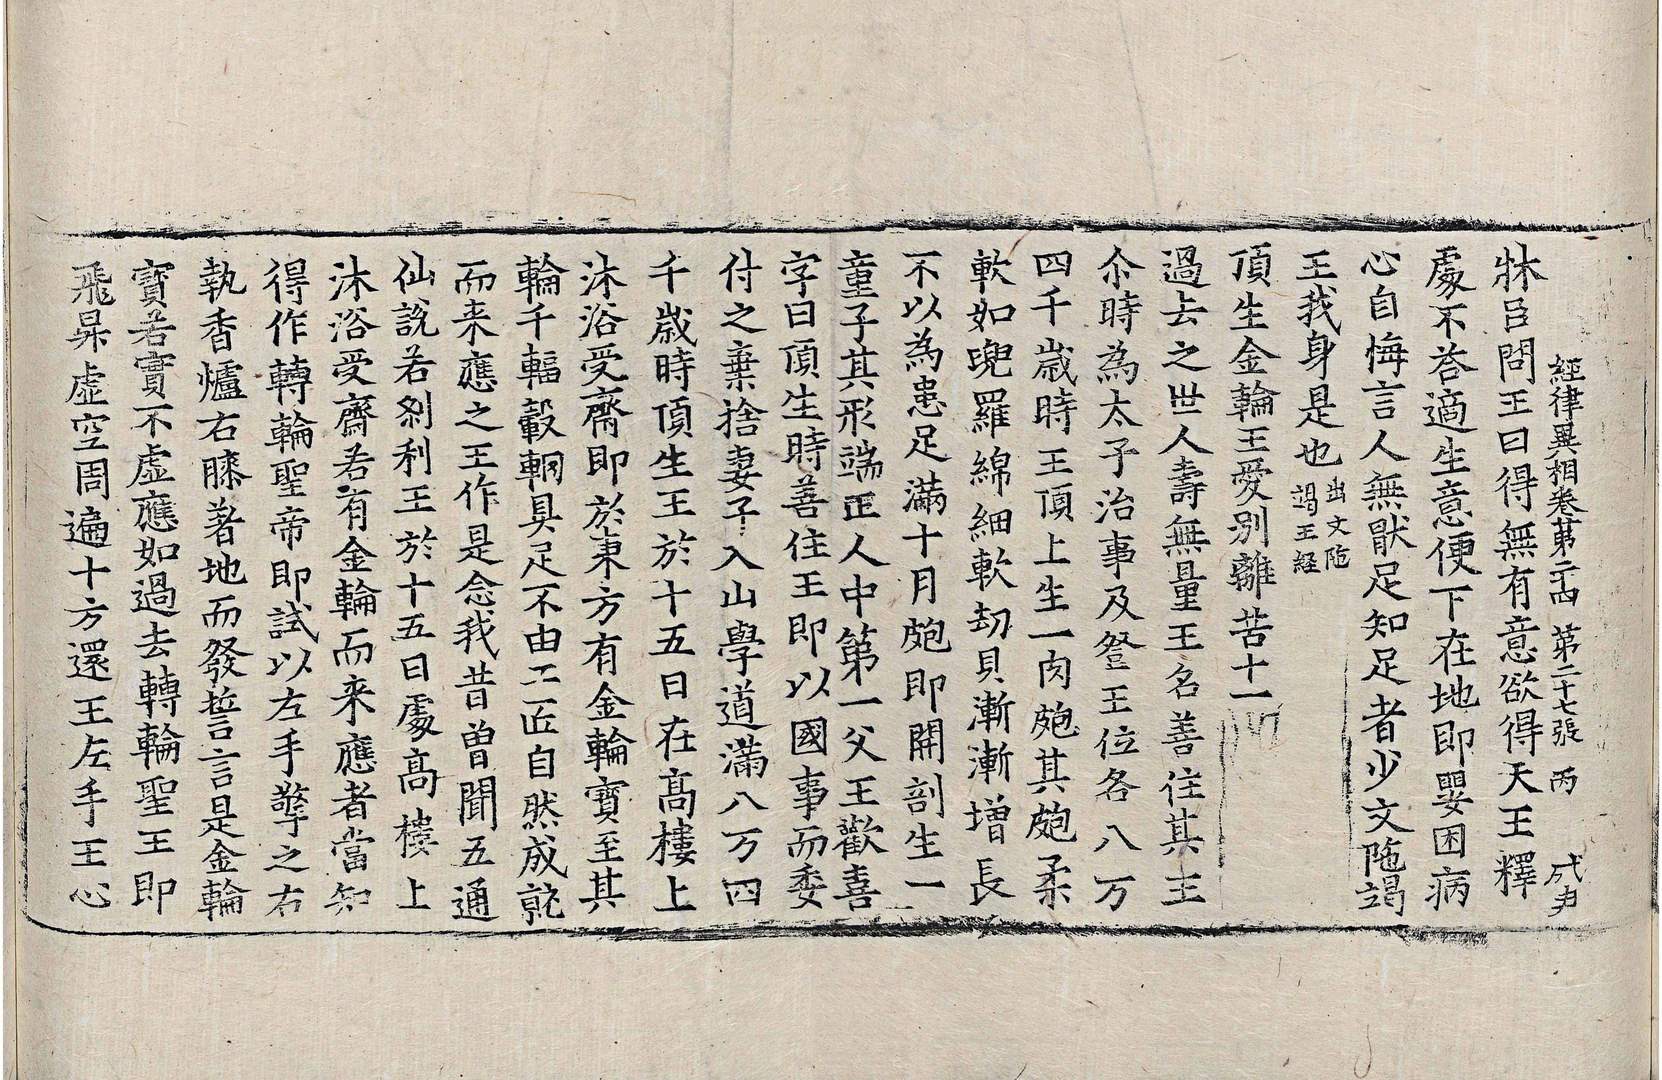 經律異相卷第二十四 第二十七張 丙 戍尹
牀臣問王曰得無有意欲得天王釋
處不荅適生意便下在地即嬰困病
心自悔言人無猒足知足者少文陁竭
王我身是也出文陁竭王經
頂生金輪王愛別離苦十一
過去之世人壽無量王名善住其王
尒時為太子治事及登王位各八万
四千歲時王頂上生一肉皰其皰柔
軟如兜羅綿細軟劫貝漸漸增長
不以為患足滿十月皰即開剖生一
童子其形端正人中第一父王歡喜
字曰頂生時善住王即以國事而委
付之棄捨妻子入山學道滿八万四
千歲時頂生王於十五日在高樓上
沐浴受齋即於東方有金輪寶至其
輪千輻轂輞具足不由工匠自然成就
而来應之王作是念我昔曽聞五通
仙說若剎利王於十五日處高樓上
沐浴受齋若有金輪而来應者當知
得作轉輪聖帝即試以左手擎之右
執香爐右膝著地而發誓言是金輪
寶若實不虛應如過去轉輪聖王即
飛昇虛空周遍十方還王左手王心